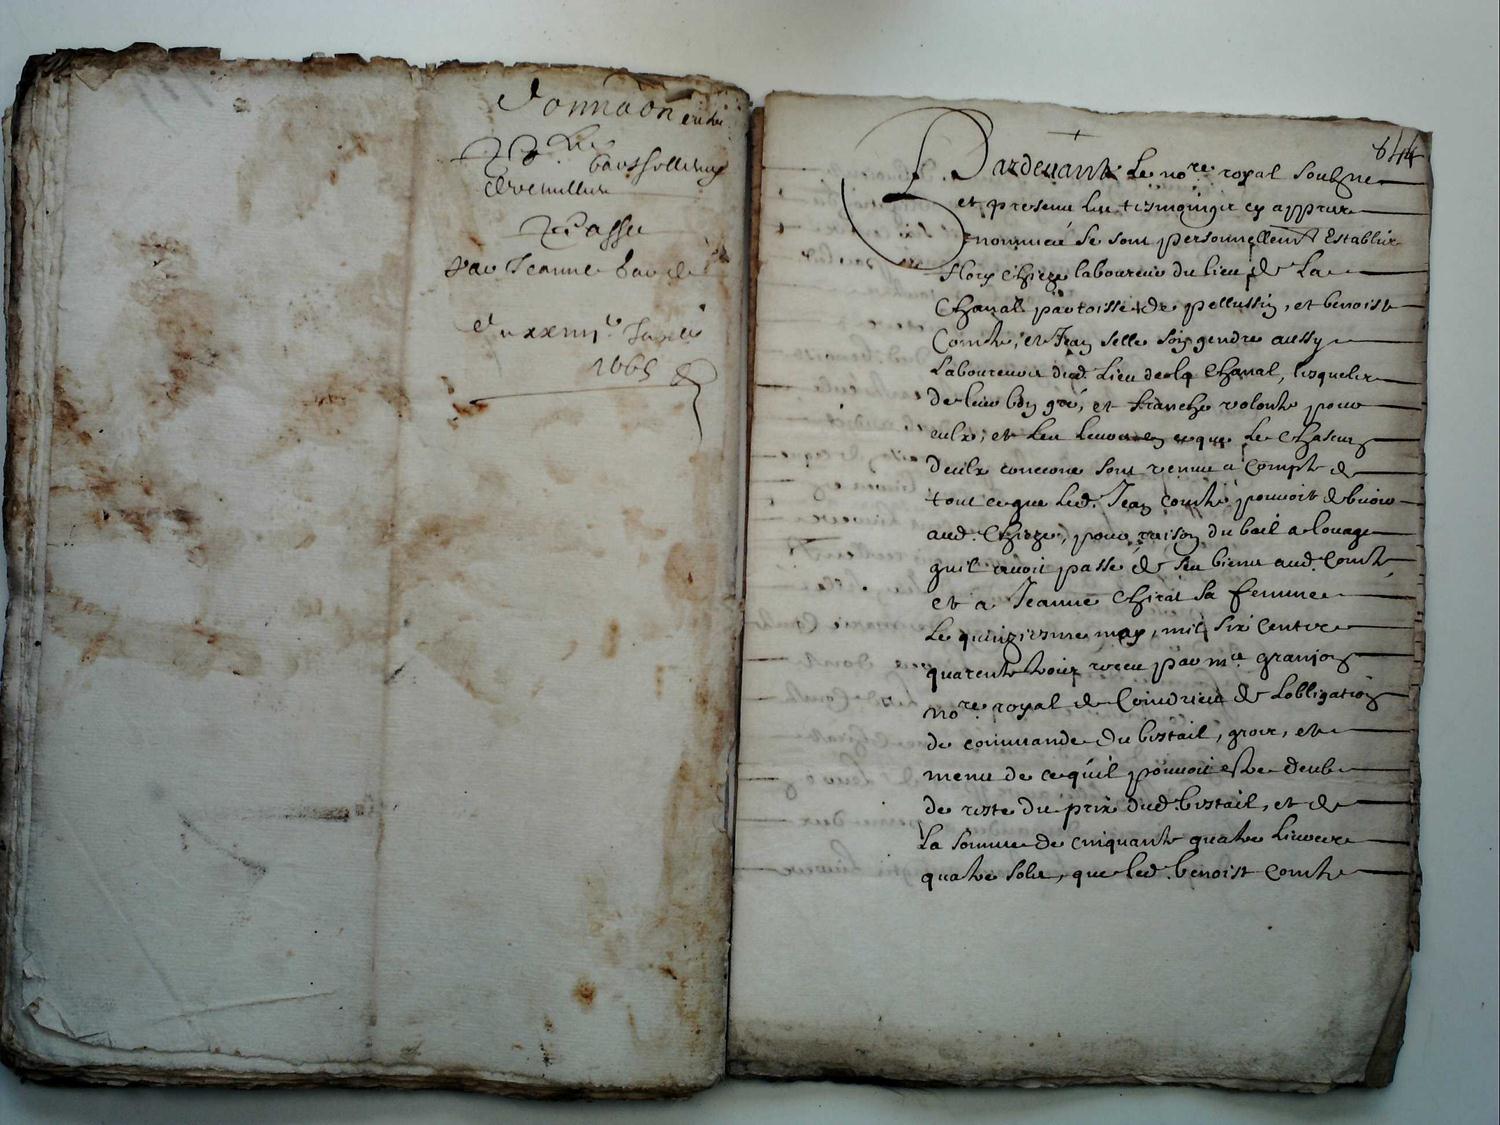 donnaon
Passee
Par Jeanne
du xxiiii.e
1665
844
Pardevant Le no.re royal soubzne
et presens les tesmoingtz cy appres
nommés se sont personnellem.t establis
flory Chieze laboureur du lieu de La
Chanal parroisse de pellussin, et benoist
Comte, et Jean selle son gendre aussy
Laboureurs dud. Lieu de la Chanal, lesquels
de leur bon gré, et franche volonte pour
eulx, et les leurs en ce que Le Chascung
deulx concerne sont venus a Compte de
tout ce que led. Jean comte pouvoit debvoir
aud. Chieze, pour raison du bail a louage
quil avoit passé de ses biens aud. Comte
et a Jeanne Chirat sa femme
Le quinziesme may, mil six centz
quarente trois receu par m.e granjon
no.re royal de Coindrieu de Lobligation
de commande du bestail, gros, et
menu de ce quil pouvoit estre deub
de reste du prix dud. bestail, et de
La somme de cinquante quatre Livres
quatre solz, que led. benoist Comte